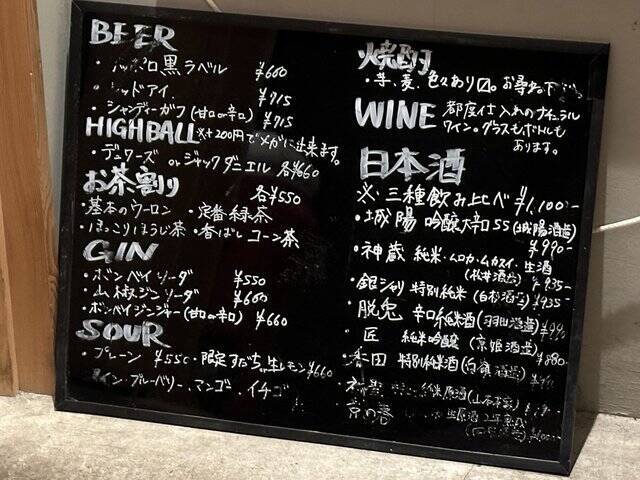 BEER
・サッポロ黒ラベル ¥660
・レッドアイ ¥715
・シャンディーガフ(甘口or辛口) ¥715
HIGHBALL ※+200円でメガに出来ます。
・デュワーズ orジャックダニエル 各¥660
お茶割り 各¥550
・基本のウーロン ・定番緑茶
・ほっこりほうじ茶 ・香ばしコーン茶
GIN
・ボンベイソーダ ¥550
・山椒ジンソーダ ¥660
・ボンベイジンジャー(甘口or辛口) ¥660
SOUR
・プレーン ¥550 ・限定すだち 生レモン ¥660
ブルーベリー、マンゴ、イチゴ
焼酎
・芋、麦、色々あり〼。お尋ね下さい
WINE 都度仕入れのナチュラル
ワイン。グラスもボトルも
あります。
日本酒
※三種飲み比べ ¥1,100-
・城陽 吟醸辛口55(城陽酒造)
¥990-
・神蔵 純米・ムロカ・ムカスイ・生酒
(松井酒造) ¥935-
・銀シャリ 特別純米(白杉酒造) ¥935-
・脱兎 辛口純米酒(羽田酒造)
・匠 純米吟醸 (京姫酒造) ¥880-
・香田 特別純米酒(白嶺酒造)
純米原酒
京の春